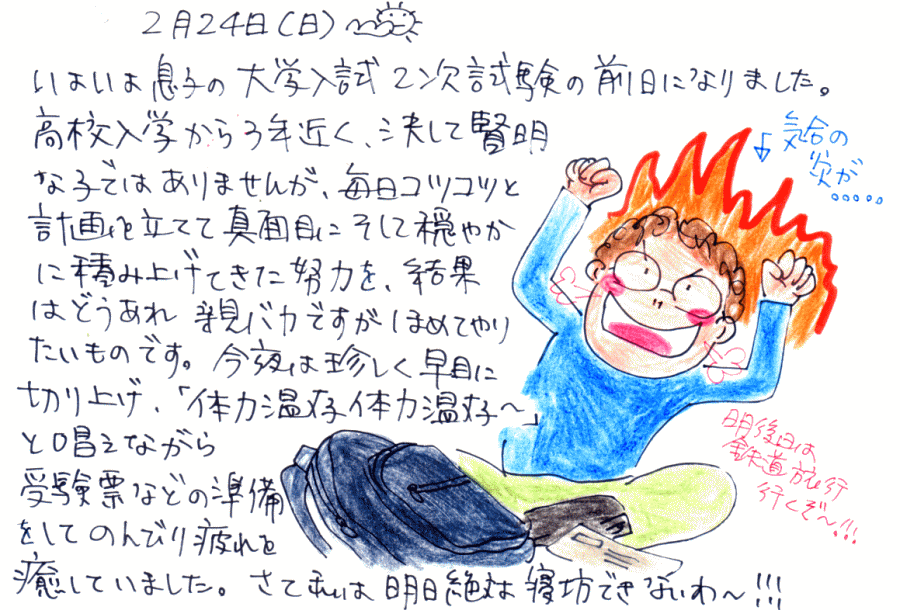 2月24日(日)
いよいよ息子の大学入試2次試験の前日になりました。
高校入学から3年近く、決して賢明
な子ではありませんが、毎日コツコツと
計画を立てて真面目にそして穏やか
に積み上げてきた努力を、結果
はどうあれ親バカですがほめてやり
たいものです。今夜は珍しく早目に
切り上げ、「体力温存体力温存〜」
と唱えながら
受験票などの準備
をしてのんびり疲れを
癒していました。さて私は明日絶対寝坊できないわ〜!!!
気合の
炎が.....
明後日は
鉄道旅行
行くぞ〜!!!